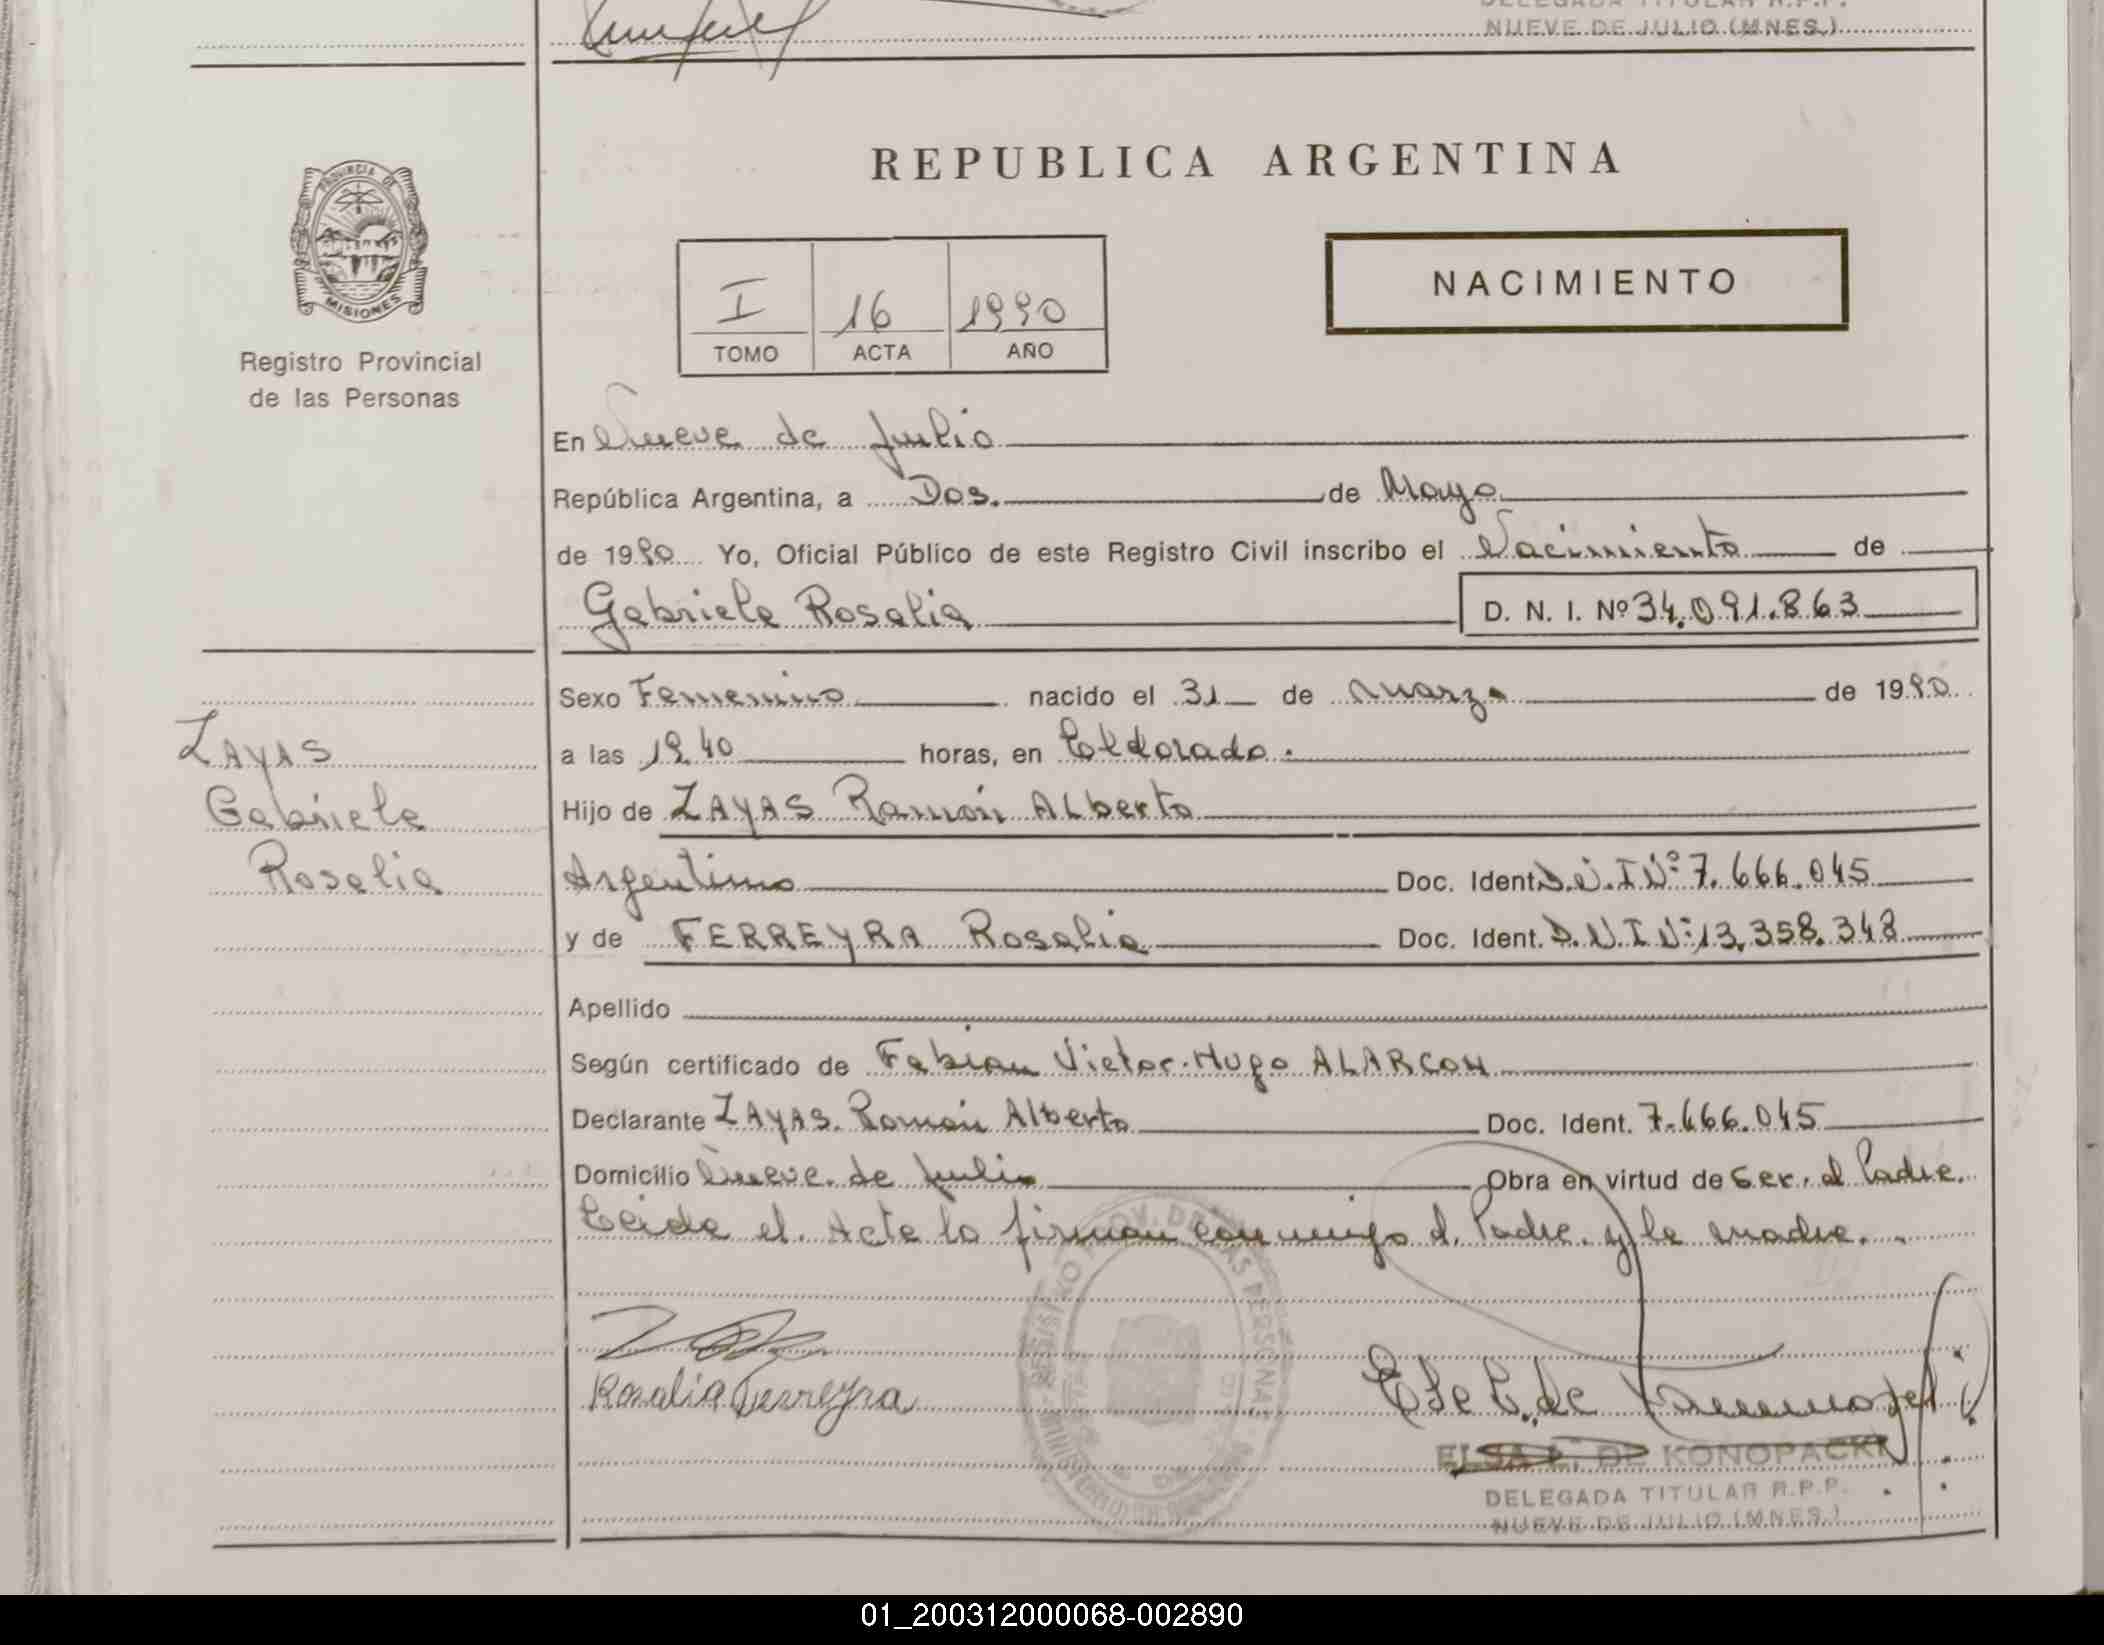 DELEGADA TITULAR R.P.P.
NUEVE DE JULIO (MNES.)
PROVINCIA DE
MISIONES
Registro Provincial
de las Personas
REPUBLICA ARGENTINA
NACIMIENTO
I 16 1990
TOMO ACTA AÑO
En Nueve de Julio
República Argentina, a Dos. de Mayo
de 1990 Yo, Oficial Público de este Registro Civil inscribo el Nacimiento de
Gabriela Rosalia D. N. I. Nº 34.091.863
Sexo Femenino nacido el 31 de marzo de 1990
ZAYAS
Gabriela
Rosalia
a las 19,40 horas, en Eldorado.
Hijo de ZAYAS Ramón ALberto
Argentino Doc. Ident. D.N.I Nº 7.666.045
y de FERREYRA Rosalia Doc. Ident. D.N.I Nº 13,358.348
Apellido
Según certificado de Fabian Victor Hugo ALARCON
Declarante ZAYAS Ramón Alberto Doc. Ident. 7.666.045
Domicilio Nueve de Julio Obra en virtud de ser el Padre.
Leida el Acta la firman conmigo el Padre y la madre.
Rosalia Ferreyra
ELSA E. DE KONOPACKI
DELEGADA TITULAR R.P.P.
NUEVE DE JULIO (MNES.)
01_200312000068-002890